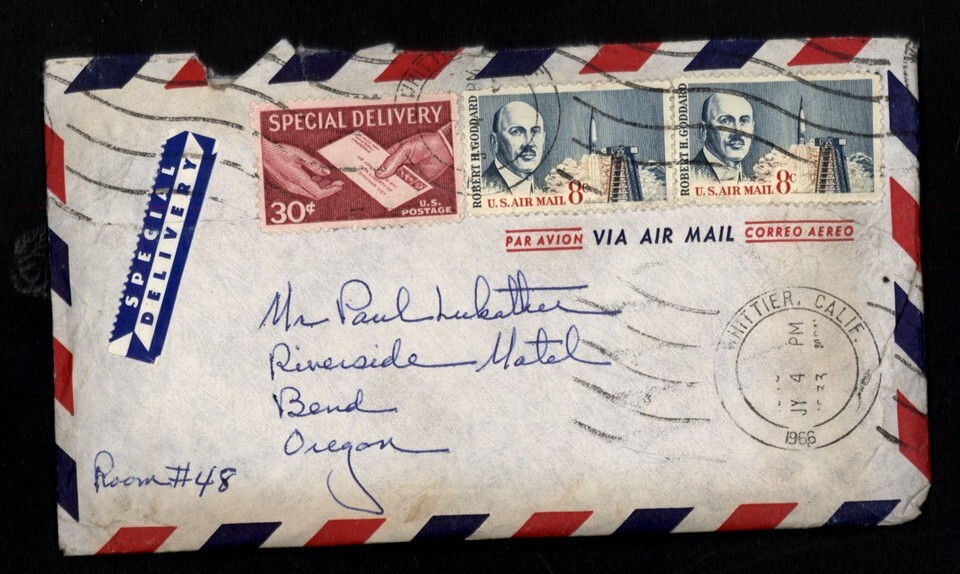 SPECIAL DELIVERY
30¢
U.S. POSTAGE
ROBERT H. GODDARD
U.S. AIR MAIL 8c
ROBERT H. GODDARD
U.S. AIR MAIL 8c
SPECIAL
DELIVERY
PAR AVION VIA AIR MAIL CORREO AEREO
WHITTIER, CALIF.
PM
JY 4
1966
Mr Paul Lukather
Riverside Motel
Bend
Oregon
Room #48